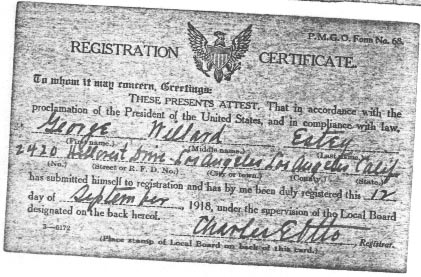 P.M.G.O. Form No. 68.
REGISTRATION CERTIFICATE.
To whom it may concern, Greetings:
THESE PRESENTS ATTEST, That in accordance with the
proclamation of the President of the United States, and in compliance with law,
George Willard Estey
(First name.) (Middle name.) (Last name.)
2420 Drive Los Angeles Los Angeles Calif
(No.) (Street or R. F. D. No.) (City or town.) (County.) (State.)
has submitted himself to registration and has by me been duly registered this 12
day of September, 1918, under the supervision of the Local Board
designated on the back hereof.
Charles
3—6172 Registrar.
(Place stamp of Local Board on back of this card.)